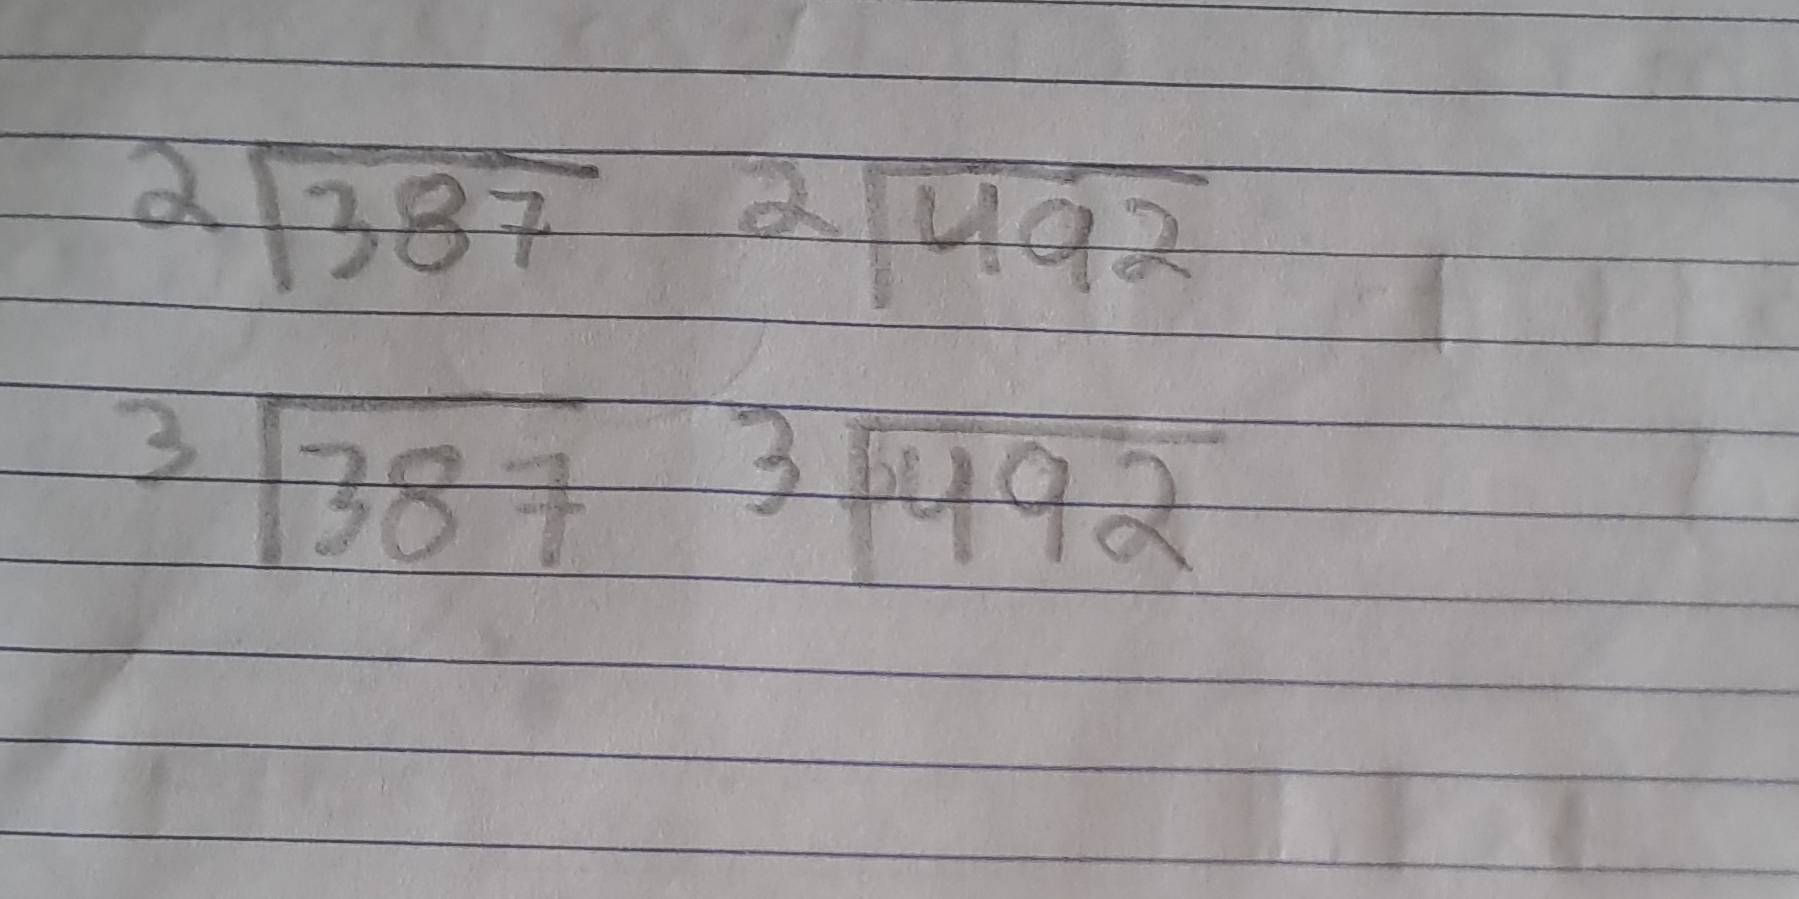 2 387 2 492
3 387 3 492